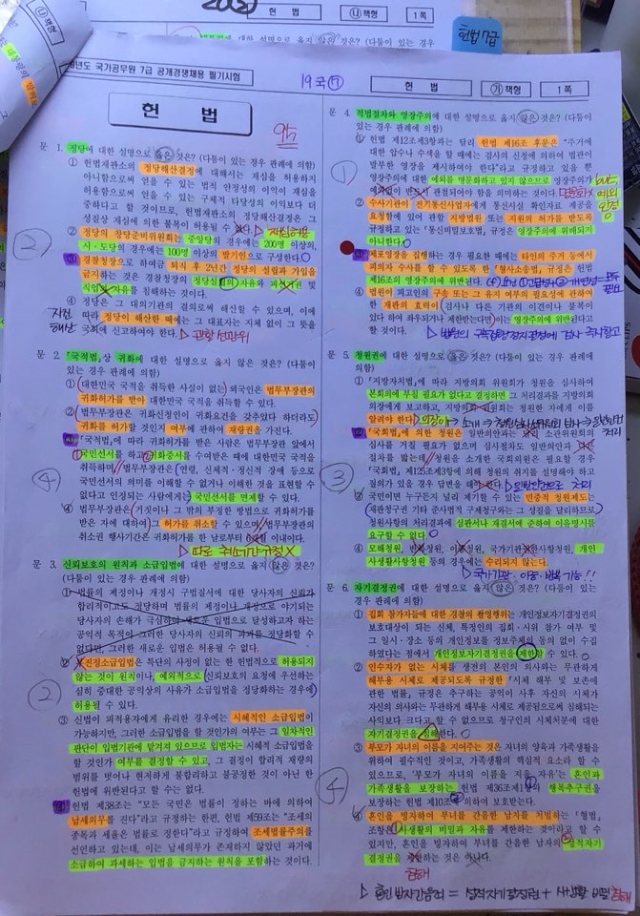 헌 법
책형
1쪽
헌법 7급
년도 국가공무원 7급 공개경쟁채용 필기시험
19국
헌 법
㉮ 책형
1쪽
헌 법
문 1. 정당에 대한 설명으로 옳지 않은 것은? (다툼이 있는 경우 판례에 의함)
① 헌법재판소의 정당해산결정에 대해서는 재심을 허용하지
아니함으로써 얻을 수 있는 법적 안정성의 이익이 재심을
허용함으로써 얻을 수 있는 구체적 타당성의 이익보다 더
중하다고 할 것이므로, 헌법재판소의 정당해산결정은 그
성질상 재심에 의한 불복이 허용될 수
② 정당의 창당준비위원회는 중앙당의 경우에는 200명 이상의,
시・도당의 경우에는 100명 이상의 발기인으로 구성한다.
경찰청장으로 하여금 퇴직 후 2년간 정당의 설립과 가입을
금지하는 것은 경찰청장의 정당설립의 자유와
자유를 침해하는 것이다.
④ 정당이 그 대의기관의 결의로써 해산할 수 있으며, 이에
따라 정당이 해산한 때에는 그 대표자는 지체 없이 그 뜻을
국회에 신고하여야 한다.
문 2. 「국적법」상 귀화에 대한 설명으로 옳지 않은 것은? (다툼이
있는 경우 판례에 의함)
① 대한민국 국적을 취득한 사실이 없는 외국인은 법무부장관의
귀화허가를 받아 대한민국 국적을 취득할 수 있다.
② 법무부장관은 귀화신청인이 귀화요건을 갖추었다 하더라도
귀화를 허가할 것인지 여부에 관하여 재량권을 가진다.
「국적법」에 따라 귀화허가를 받은 사람은 법무부장관 앞에서
국민선서를 하고 귀화증서를 수여받은 때에 대한민국 국적을
취득하며, 법무부장관은 연령, 신체적・정신적 장애 등으로
국민선서의 의미를 이해할 수 없거나 이해한 것을 표현할 수
없다고 인정되는 사람에게는 국민선서를 면제할 수 있다.
④ 법무부장관은 거짓이나 그 밖의 부정한 방법으로 귀화허가를
받은 자에 대하여 그 허가를 취소할 수 있으며, 법무부장관의
취소권 행사기간은 귀화허가를 한 날로부터 이내이다.
문 3. 신뢰보호의 원칙과 소급입법에 대한 설명으로 옳지 않은 것은?
(다툼이 있는 경우 판례에 의함)
① 법률의 제정이나 개정시 구법질서에 대한 당사자의 신뢰가
합리적이고도 정당하며 법률의 제정이나 개정으로 야기되는
당사자의 손해가 극심하여 새로운 입법으로 달성하고자 하는
공익적 목적이 그러한 당사자의 신뢰의 파괴를 정당화할 수
없다면, 그러한 새로운 입법은 허용될 수 없다.
진정소급입법은 특단의 사정이 없는 한 헌법적으로 허용되지
않는 것이 원칙이나, 예외적으로 신뢰보호의 요청에 우선하는
심히 중대한 공익상의 사유가 소급입법을 정당화하는 경우에
허용될 수 있다.
③ 신법이 피적용자에게 유리한 경우에는 시혜적인 소급입법이
가능하지만, 그러한 소급입법을 할 것인가의 여부는 그 일차적인
판단이 입법기관에 맡겨져 있으므로 입법자는 시혜적 소급입법을
할 것인가 여부를 결정할 수 있고, 그 결정이 합리적 재량의
범위를 벗어나 현저하게 불합리하고 불공정한 것이 아닌 한
헌법에 위반된다고 할 수는 없다.
헌법 제38조는 "모든 국민은 법률이 정하는 바에 의하여
납세의무를 진다"라고 규정하는 한편, 헌법 제59조는 "조세의
종목과 세율은 법률로 정한다"라고 규정하여 조세법률주의를
선언하고 있는데, 이는 납세의무가 존재하지 않았던 과거에
소급하여 과세하는 입법을 금지하는 원칙을 포함하는 것이다.
문 4. 적법절차와 영장주의에 대한 설명으로 옳지 않은 것은? (다툼이
있는 경우 판례에 의함)
① 헌법 제12조제3항과는 달리 헌법 제16조 후문은 "주거에
대한 압수나 수색을 할 때에는 검사의 신청에 의하여 법관이
발부한 영장을 제시하여야 한다"라고 규정하고 있을 뿐
영장주의에 대한 예외를 명문화하고 있지 않으므로 영장주의가
예외없이 반드시 관철되어야 함을 의미하는 것이다.
② 수사기관이 전기통신사업자에게 통신사실 확인자료 제공을
요청함에 있어 관할 지방법원 또는 지원의 허가를 받도록
규정하고 있는 「통신비밀보호법」 규정은 영장주의에 위배되지
아니한다.
체포영장을 집행하는 경우 필요한 때에는 타인의 주거 등에서
피의자 수사를 할 수 있도록 한 「형사소송법」 규정은 헌법
제16조의 영장주의에 위반된다.
④ 법원이 피고인의 구속 또는 그 유지 여부의 필요성에 관하여
한 재판의 효력이 검사나 다른 기관의 이견이나 불복이
있다 하여 좌우되거나 제한받는다면 이는 영장주의에 위반된다고
할 것이다.
문 5. 청원권에 대한 설명으로 옳은 것은? (다툼이 있는 경우 판례에
의함)
① 「지방자치법」에 따라 지방의회 위원회가 청원을 심사하여
본회의에 부칠 필요가 없다고 결정하면 그 처리결과를 지방의회
의장에게 보고하고, 지방의회 위원회는 청원한 자에게 이를
알려야 한다.
「국회법」에 의한 청원은 일반의안과는 소관위원회의
심사를 거칠 필요가 없으며 심사절차도 일반의안과
절차를 밟는데, 청원을 소개한 국회의원은 필요할 경우
「국회법」 제125조제3항에 의해 청원의 취지를 설명해야 하고
질의가 있을 경우 답변을 해야 한다.
국민이면 누구든지 널리 제기할 수 있는 민중적 청원제도는
재판청구권 기타 준사법적 구제청구와는 그 성질을 달리하므로
청원사항의 처리결과에 심판서나 재결서에 준하여 이유명시를
요구할 수 없다.
④ 모해청원, 반복청원, 이중청원, 국가기관권한사항청원, 개인
사생활사항청원 등의 경우에는 수리되지 않는다.
문 6. 자기결정권에 대한 설명으로 옳지 않은 것은? (다툼이 있는
경우 판례에 의함)
① 집회 참가자들에 대한 경찰의 촬영행위는 개인정보자기결정권의
보호대상이 되는 신체, 특정인의 집회・시위 참가 여부 및
그 일시・장소 등의 개인정보를 정보주체의 동의 없이 수집
하였다는 점에서 개인정보자기결정권을 제한할 수 있다.
② 인수자가 없는 시체를 생전의 본인의 의사와는 무관하게
해부용 시체로 제공되도록 규정한 「시체 해부 및 보존에
관한 법률」 규정은 추구하는 공익이 사후 자신의 시체가
자신의 의사와는 무관하게 해부용 시체로 제공됨으로써 침해되는
사익보다 크다고 할 수 없으므로 청구인의 시체처분에 대한
자기결정권을 침해한다.
③ 부모가 자녀의 이름을 지어주는 것은 자녀의 양육과 가족생활을
위하여 필수적인 것이고, 가족생활의 핵심적 요소라 할 수
있으므로, '부모가 자녀의 이름을 지을 자유'는 혼인과
가족생활을 보장하는 헌법 제36조제1항과 행복추구권을
보장하는 헌법 제10조에 의하여 보호받는다.
혼인을 빙자하여 부녀를 간음한 남자를 처벌하는 「형법」
조항은 사생활의 비밀과 자유를 제한하는 것이라고 할 수
있지만, 혼인을 빙자하여 부녀를 간음한 남자의 성적자기
결정권을 제한하는 것은 아니다.
침해